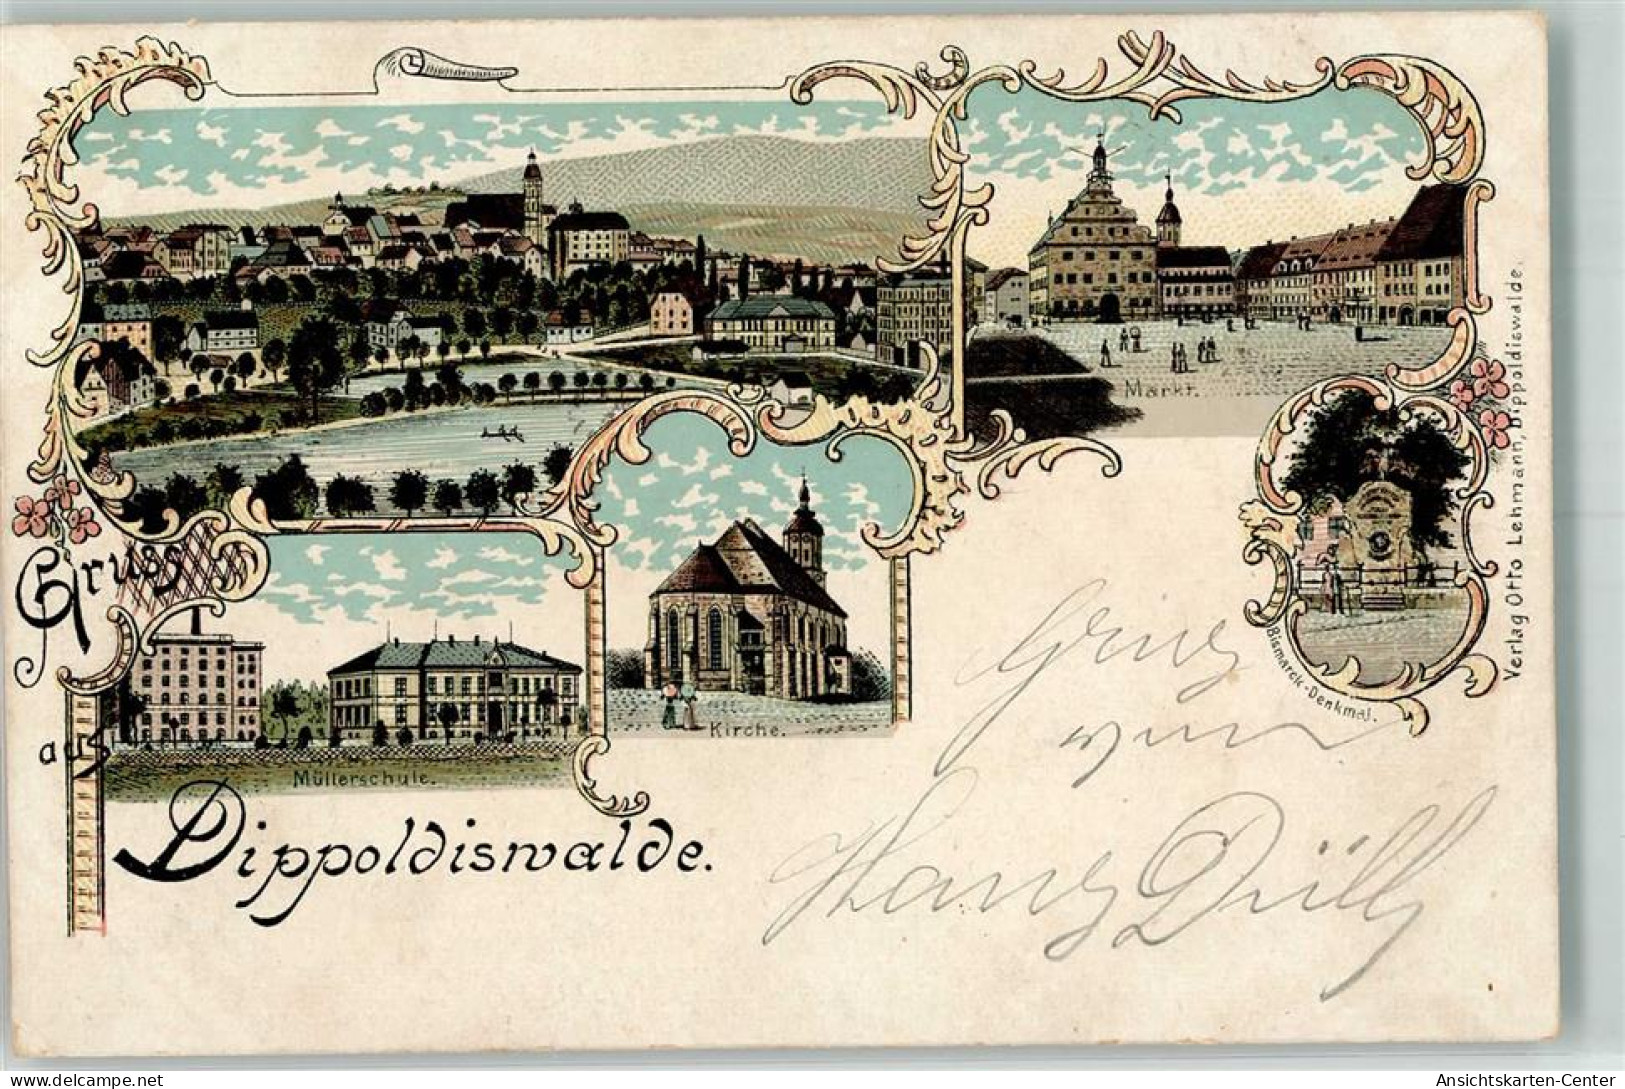 Gruss
aus
Dippoldiswalde.
Markt.
Kirche.
Müllerschule.
Bismarck-Denkmal.
Verlag Otto Lehmann, Dippoldiswalde.
Gruß
von
Hans
Ansichtskarten-Center